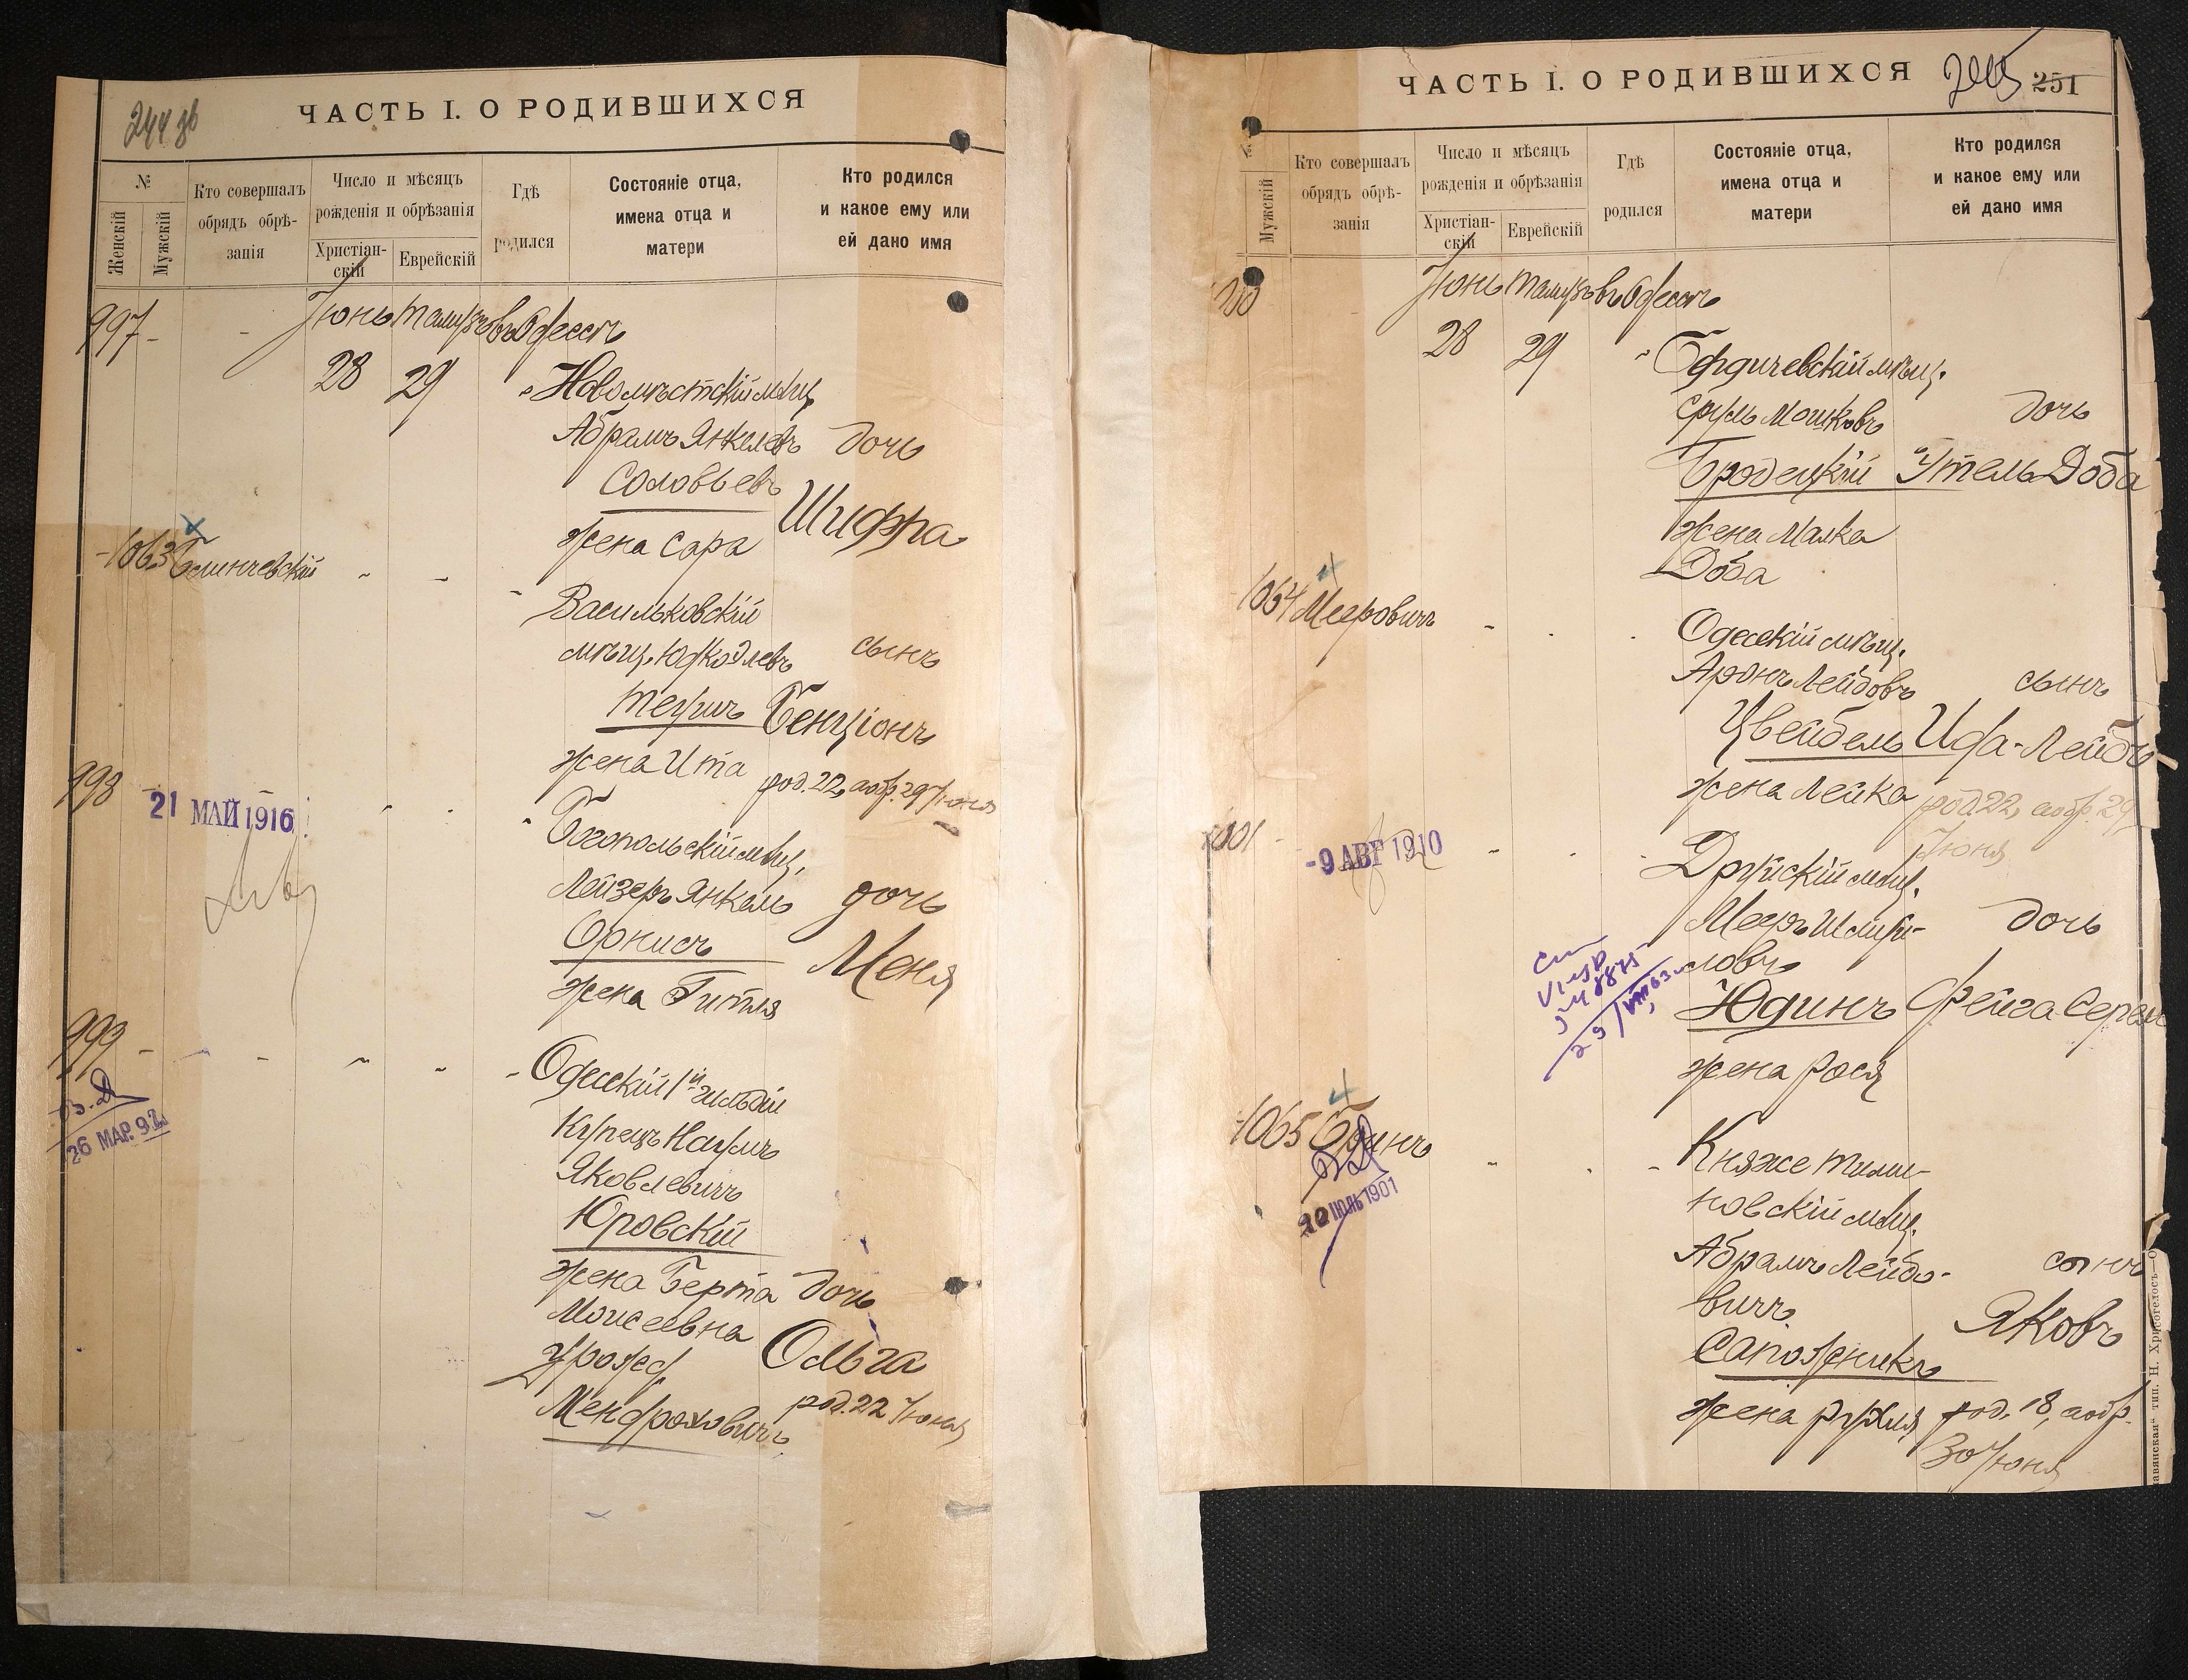 244 зв
ЧАСТЬ I. О РОДИВШИХСЯ
№
Женскій
Мужскій
Кто совершалъ
обрядъ обрѣ-
занія
Число и мѣсяцъ
рожденія и обрѣзанія
Христіан-
скій
Еврейскій
Гдѣ
родился
Состояніе отца,
имена отца и
матери
Кто родился
и какое ему или
ей дано имя
997 - - Іюнь Тамузъ въ Одессѣ
28 29
Новомѣстскій мѣщ.
Абрамъ Янкелевъ дочь
Соловьевъ
Шифра
жена Сара
1063
Васильковскій
мѣщ. сынъ
Бенціонъ
жена Ита род. 22, аобр. 29 Іюня
998
21 МАЙ 1916
Богопольскій мѣщ.
Лейзеръ Янкель дочь
Орнисъ
Меня
жена Гитля
999 -
В.Д
26 МАР. 92
Одесскій 1й гильдіи
Купецъ Наумъ
Яковлевичъ
Юровскій
жена Берта дочь
Моисеевна
Ольга
урожд
род. 22 Іюня
Мендроховичъ
ЧАСТЬ I. О РОДИВШИХСЯ
251
№
Мужскій
Кто совершалъ
обрядъ обрѣ-
занія
Число и мѣсяцъ
рожденія и обрѣзанія
Христіан-
скій
Еврейскій
Гдѣ
родился
Состояніе отца,
имена отца и
матери
Кто родился
и какое ему или
ей дано имя
Іюнь Тамузъ въ Одессѣ
28 29
Бердичевскій мѣщ.
Сруль Мошковъ дочь
Бродецкій Этель Доба
жена Малка
Доба
1064 Мееровичъ
Одесскій мѣщ.
Аронъ Лейбовъ сынъ
Цвейбель Ида-Лейбъ
жена Лейка род. 22, аобр. 29
Іюня
1001 -
-9 АВГ 1910
Друйскій мѣщ.
Мееръ Шмуй- дочь
ловъ
Юдинъ Фейга Серель
жена Рося
1065 Бринъ
ВД
20 ІЮЛЬ 1901
Княже Тими-
новскій мѣщ.
Абрамъ Лейбо- сынъ
вичъ
Яковъ
Сапожникъ
жена Рухля род. 18, аобр.
30 Іюня
авянская" тип. Н. Хрисогелосъ—О